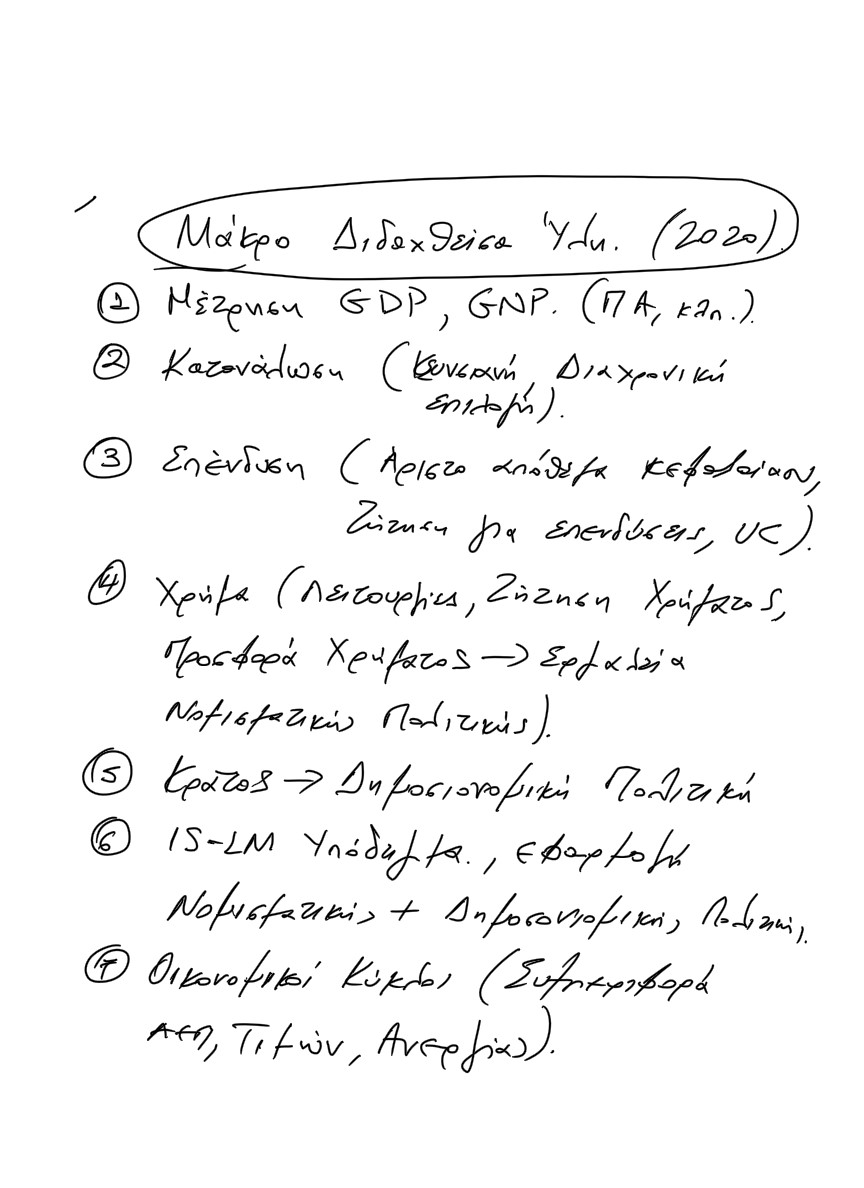 Μάκρο Διδαχθείσα Ύλη. (2020).
① Μέτρηση GDP, GNP. (ΠΑ, κλπ.).
② Κατανάλωση (Κευνσιανή, Διαχρονική
επιλογή).
③ Επένδυση (Άριστο απόθεμα κεφαλαίου,
Ζήτηση για επενδύσεις, UC).
④ Χρήμα (Λειτουργίες, Ζήτηση Χρήματος,
Προσφορά Χρήματος → Εργαλεία
Νομισματικής Πολιτικής).
⑤ Κράτος → Δημοσιονομική Πολιτική
⑥ IS-LM Υπόδειγμα., εφαρμογή
Νομισματικής + Δημοσιονομικής Πολιτικής.
⑦ Οικονομικοί Κύκλοι (Συμπεριφορά
ΑΕΠ, Τιμών, Ανεργίας).